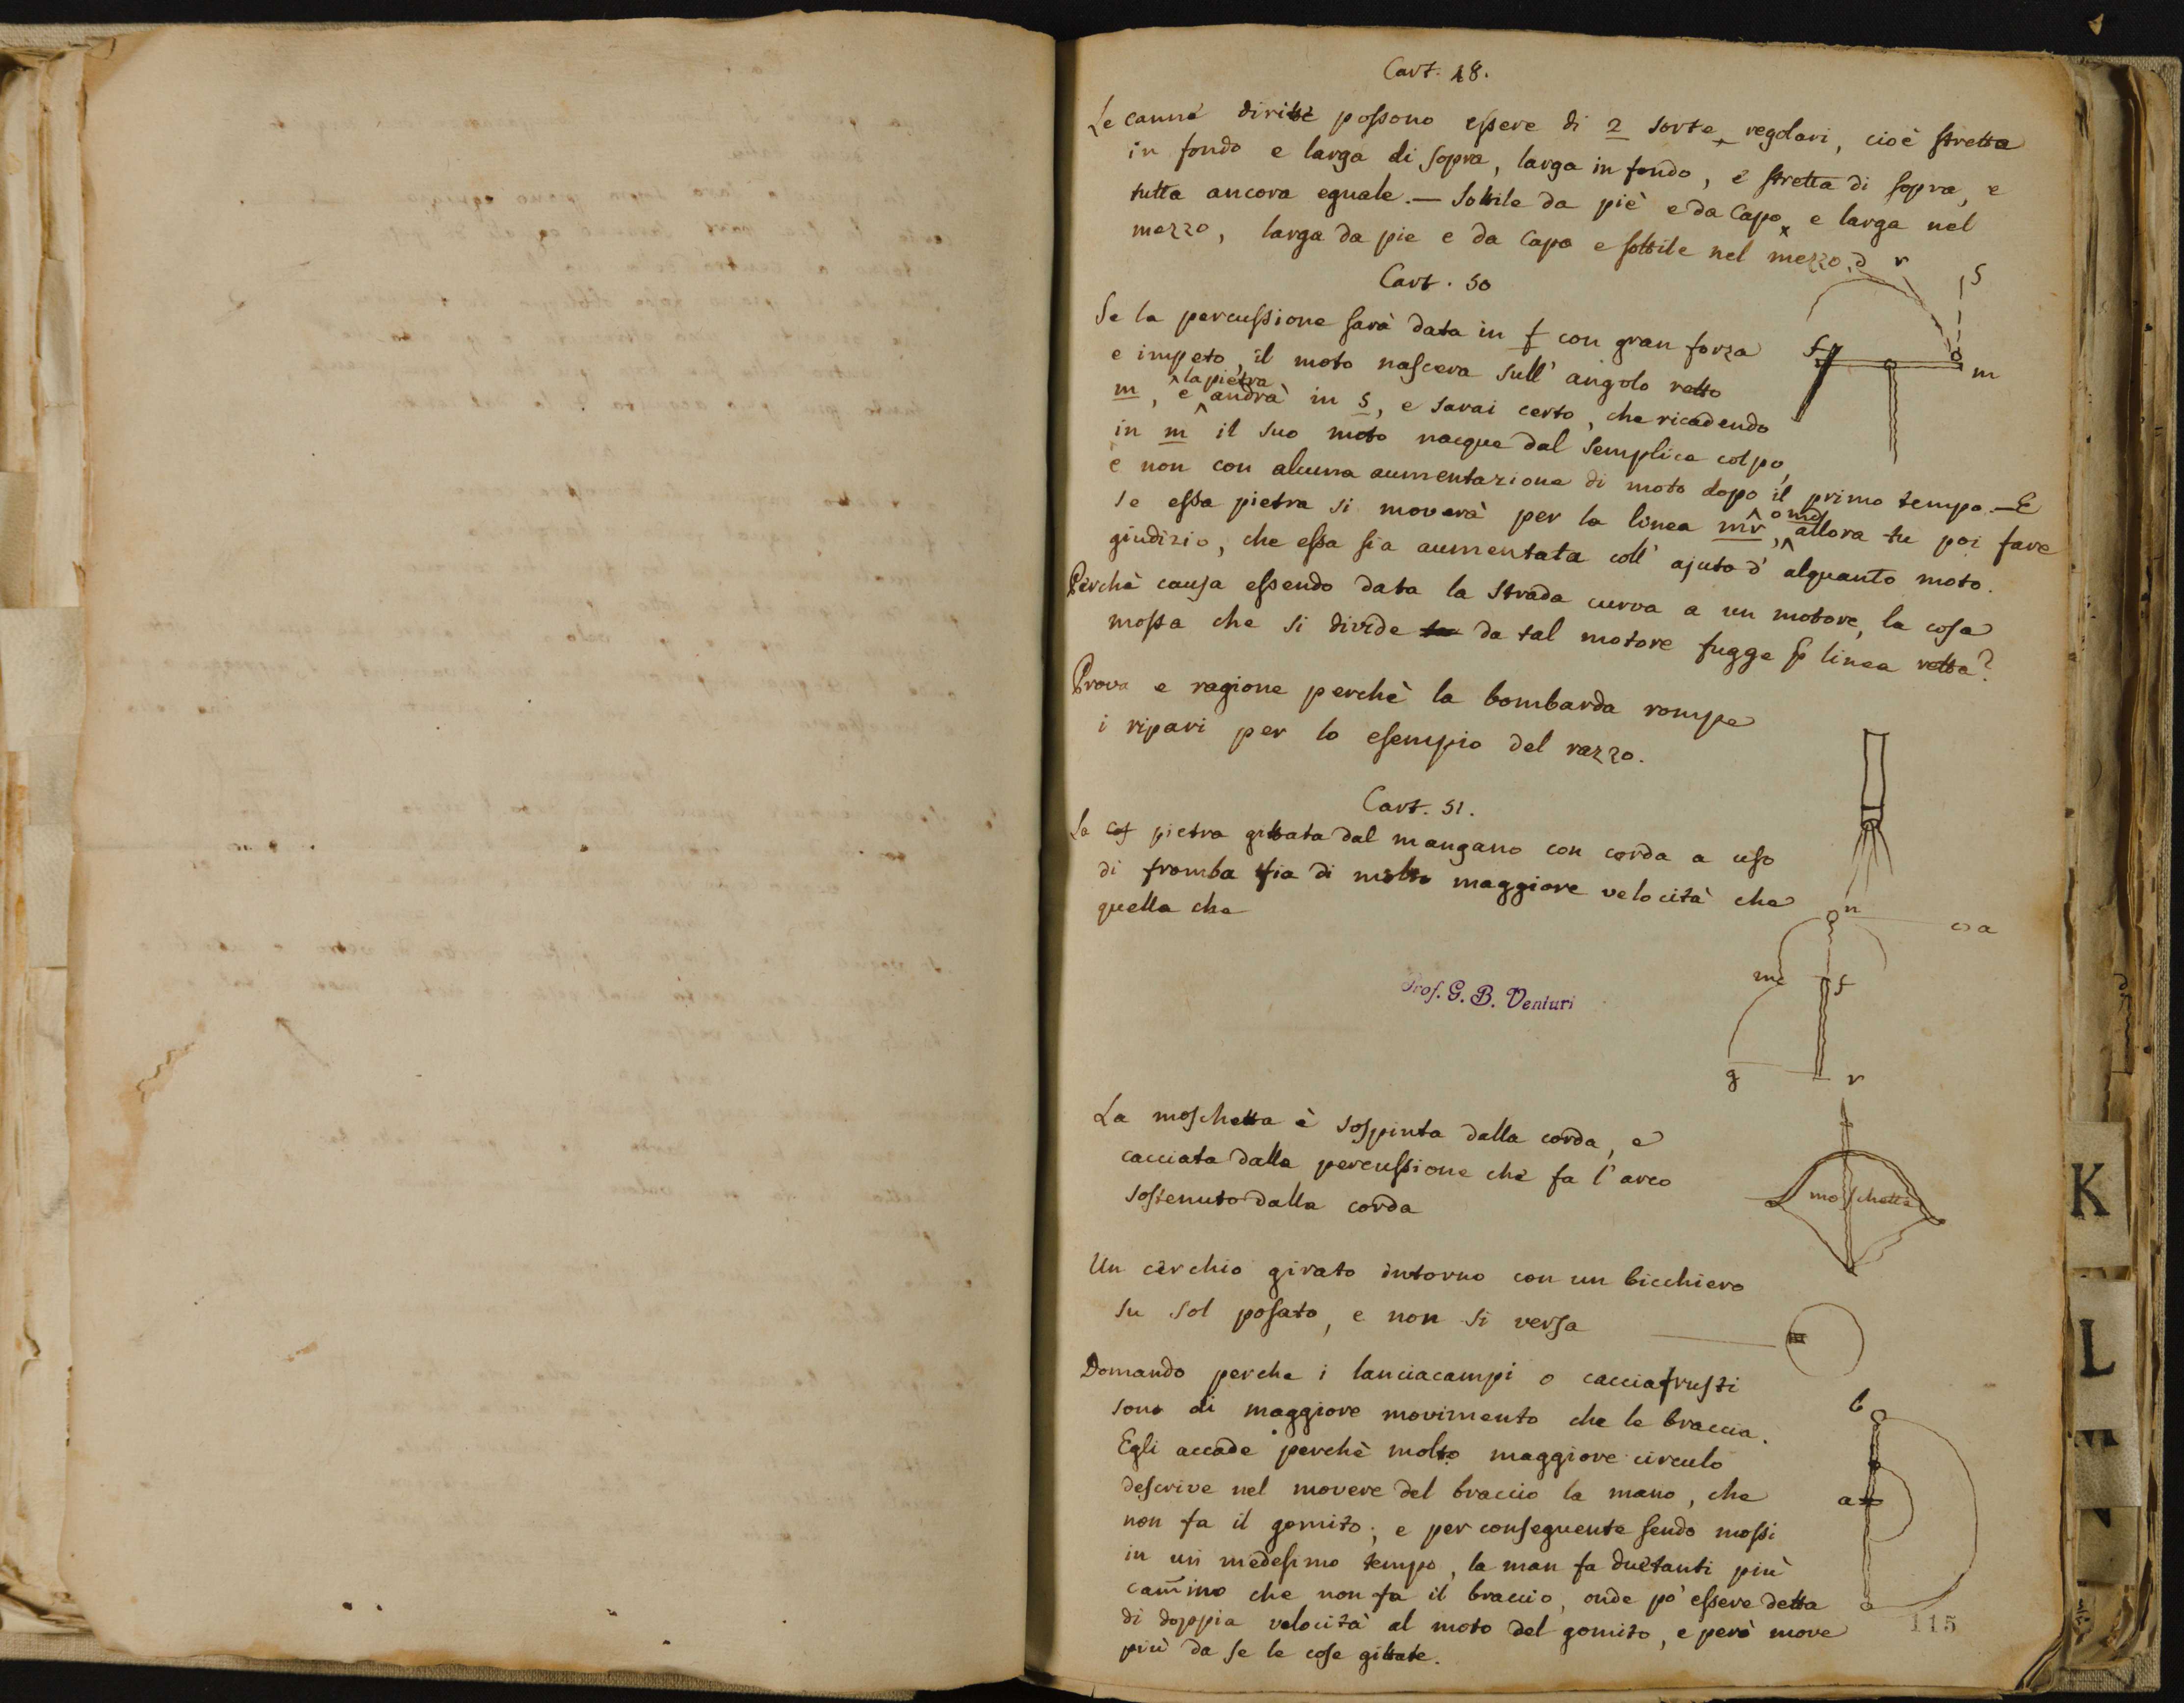 Cart. 48.
Le canne diritte possono essere di 2 sorte, regolari, cioè stretta
in fondo e larga di sopra, larga in fondo, e stretta di sopra, e
tutta ancora eguale. — Sottile da piè e da capo, e larga nel
mezzo, larga da pie e da capo e sottile nel mezzo.
Cart. 50
Se la percussione sarà data in f con gran forza
e impeto, il moto nascera sull' angolo retto
m, e la pietra andrà in s, e sarai certo, che ricadendo
in m il suo moto nacque dal semplice colpo,
e non con alcuna aumentazione di moto dopo il primo tempo. — E
se essa pietra si moverà per la linea mr, o md allora tu poi fare
giudizio, che essa sia aumentata coll' ajuto d' alquanto moto.
Perchè causa essendo data la strada curva a un motore, la cosa
mossa che si divide da tal motore fugge p linea retta?
Prova e ragione perchè la bombarda rompe
i ripari per lo esempio del razzo.
Cart. 51.
La pietra gittata dal mangano con corda a uso
di fromba fia di molto maggiore velocità che
quella che
d r S
f m
n a
m f
g r
Prof. G. B. Venturi
La moschetta è sospinta dalla corda, e
cacciata dalla percussione che fa l'arco
sostenuto dalla corda
moschetta
Un cerchio girato intorno con un bicchiero
su sol posato, e non si versa
m
Domando perche i lanciacampi o cacciafrusti
sono di maggiore movimento che le braccia.
Egli accade perchè molto maggiore circulo
descrive nel movere del braccio la mano, che
non fa il gomito; e per conseguente sendo mossi
in un medesimo tempo, la man fa duetanti più
cam̄ino che non fa il braccio, onde pò essere detta
di doppia velocità al moto del gomito, e però move
più da se le cose gittate.
b
a
115
K
L
M
N